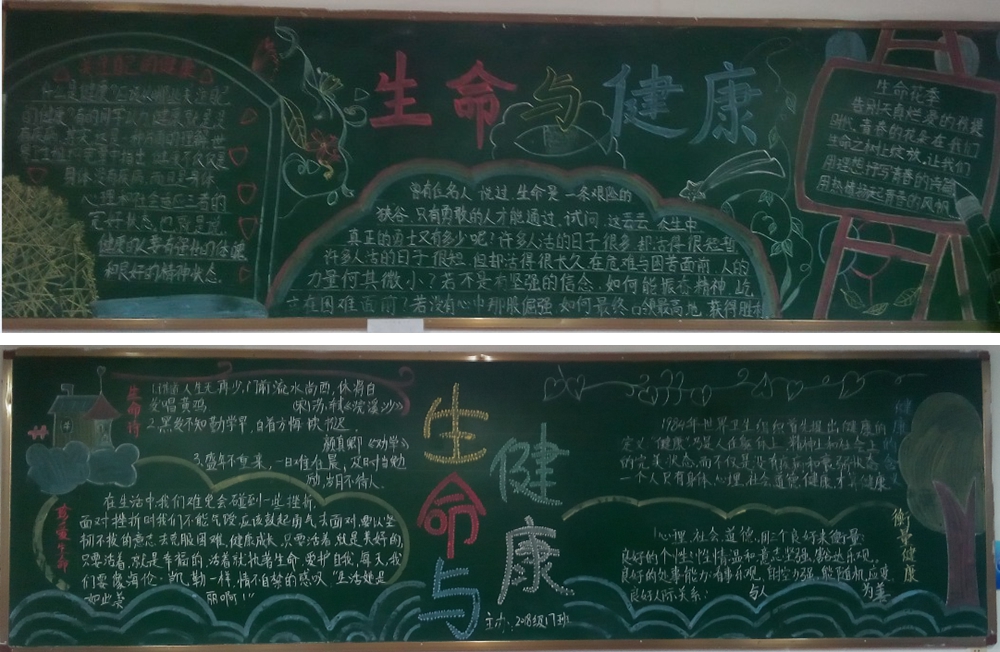 生命与健康
健康
曾有位名人说过生命是一条艰险的
狭谷,只有勇敢的人才能通过,试问,这 人生中
真正的勇士又有多少呢?许多人活的日子很多,却活得很短暂
许多人活的日子很短,但却活得很长久在危难与困苦面前,人的
力量何其微小?若不是有坚强的信念,如何能振奋精神,屹
立在困难面前?若没有心中那股倔强,如何最终占领最高地,获得胜利
的健康
身体没有疾病,而且身体、
心理和社会适应三者的
完好状态,也就是说,
健康的人要有强壮的体魄
和良好的精神状态。
生命花季
告别天真烂漫的稚提
时代,青春的花朵在我们
生命之树上绽放,让我们
用理想抒写青春的诗篇
用热情扬起青春的风帆
生命诗
1.谁道人生无再少,门前流水尚西,休将白
发唱黄鸡 (宋)苏轼《浣溪沙》
2.黑发不知勤学早,白首方悔读书迟。
颜真卿《劝学》
3.盛年不重来,一日难在晨,及时当勉
励,岁月不待人。
珍爱生命
在生活中,我们难免会碰到一些挫折,
面对挫折时我们不能气馁,应该鼓起勇气去面对,要以坚
韧不拔的意志去克服困难,健康成长,只要活着,就是美好的,
只要活着,就是幸福的,活着就执着生命,爱护自我,每天,我
们要像海伦·凯勒一样,情不自禁的感叹“生活是
如此美丽啊!”
生命与
健康
主办:2018级17班
健康的
1984年世界卫生组织首先提出健康的
定义“健康”乃是人在躯体上、精神上和社会上
的完美状态,而不仅是没有疾病和衰弱状态
一个人只有身体、心理、社会道德健康,才算健康
衡量健康
心理、社会、道德,用三个良好来衡量:
良好的个性:性情温和意志坚强,豁达乐观。
良好的处事能力:客观,自控力强,能随机应变
良好人际关系: 与人为善